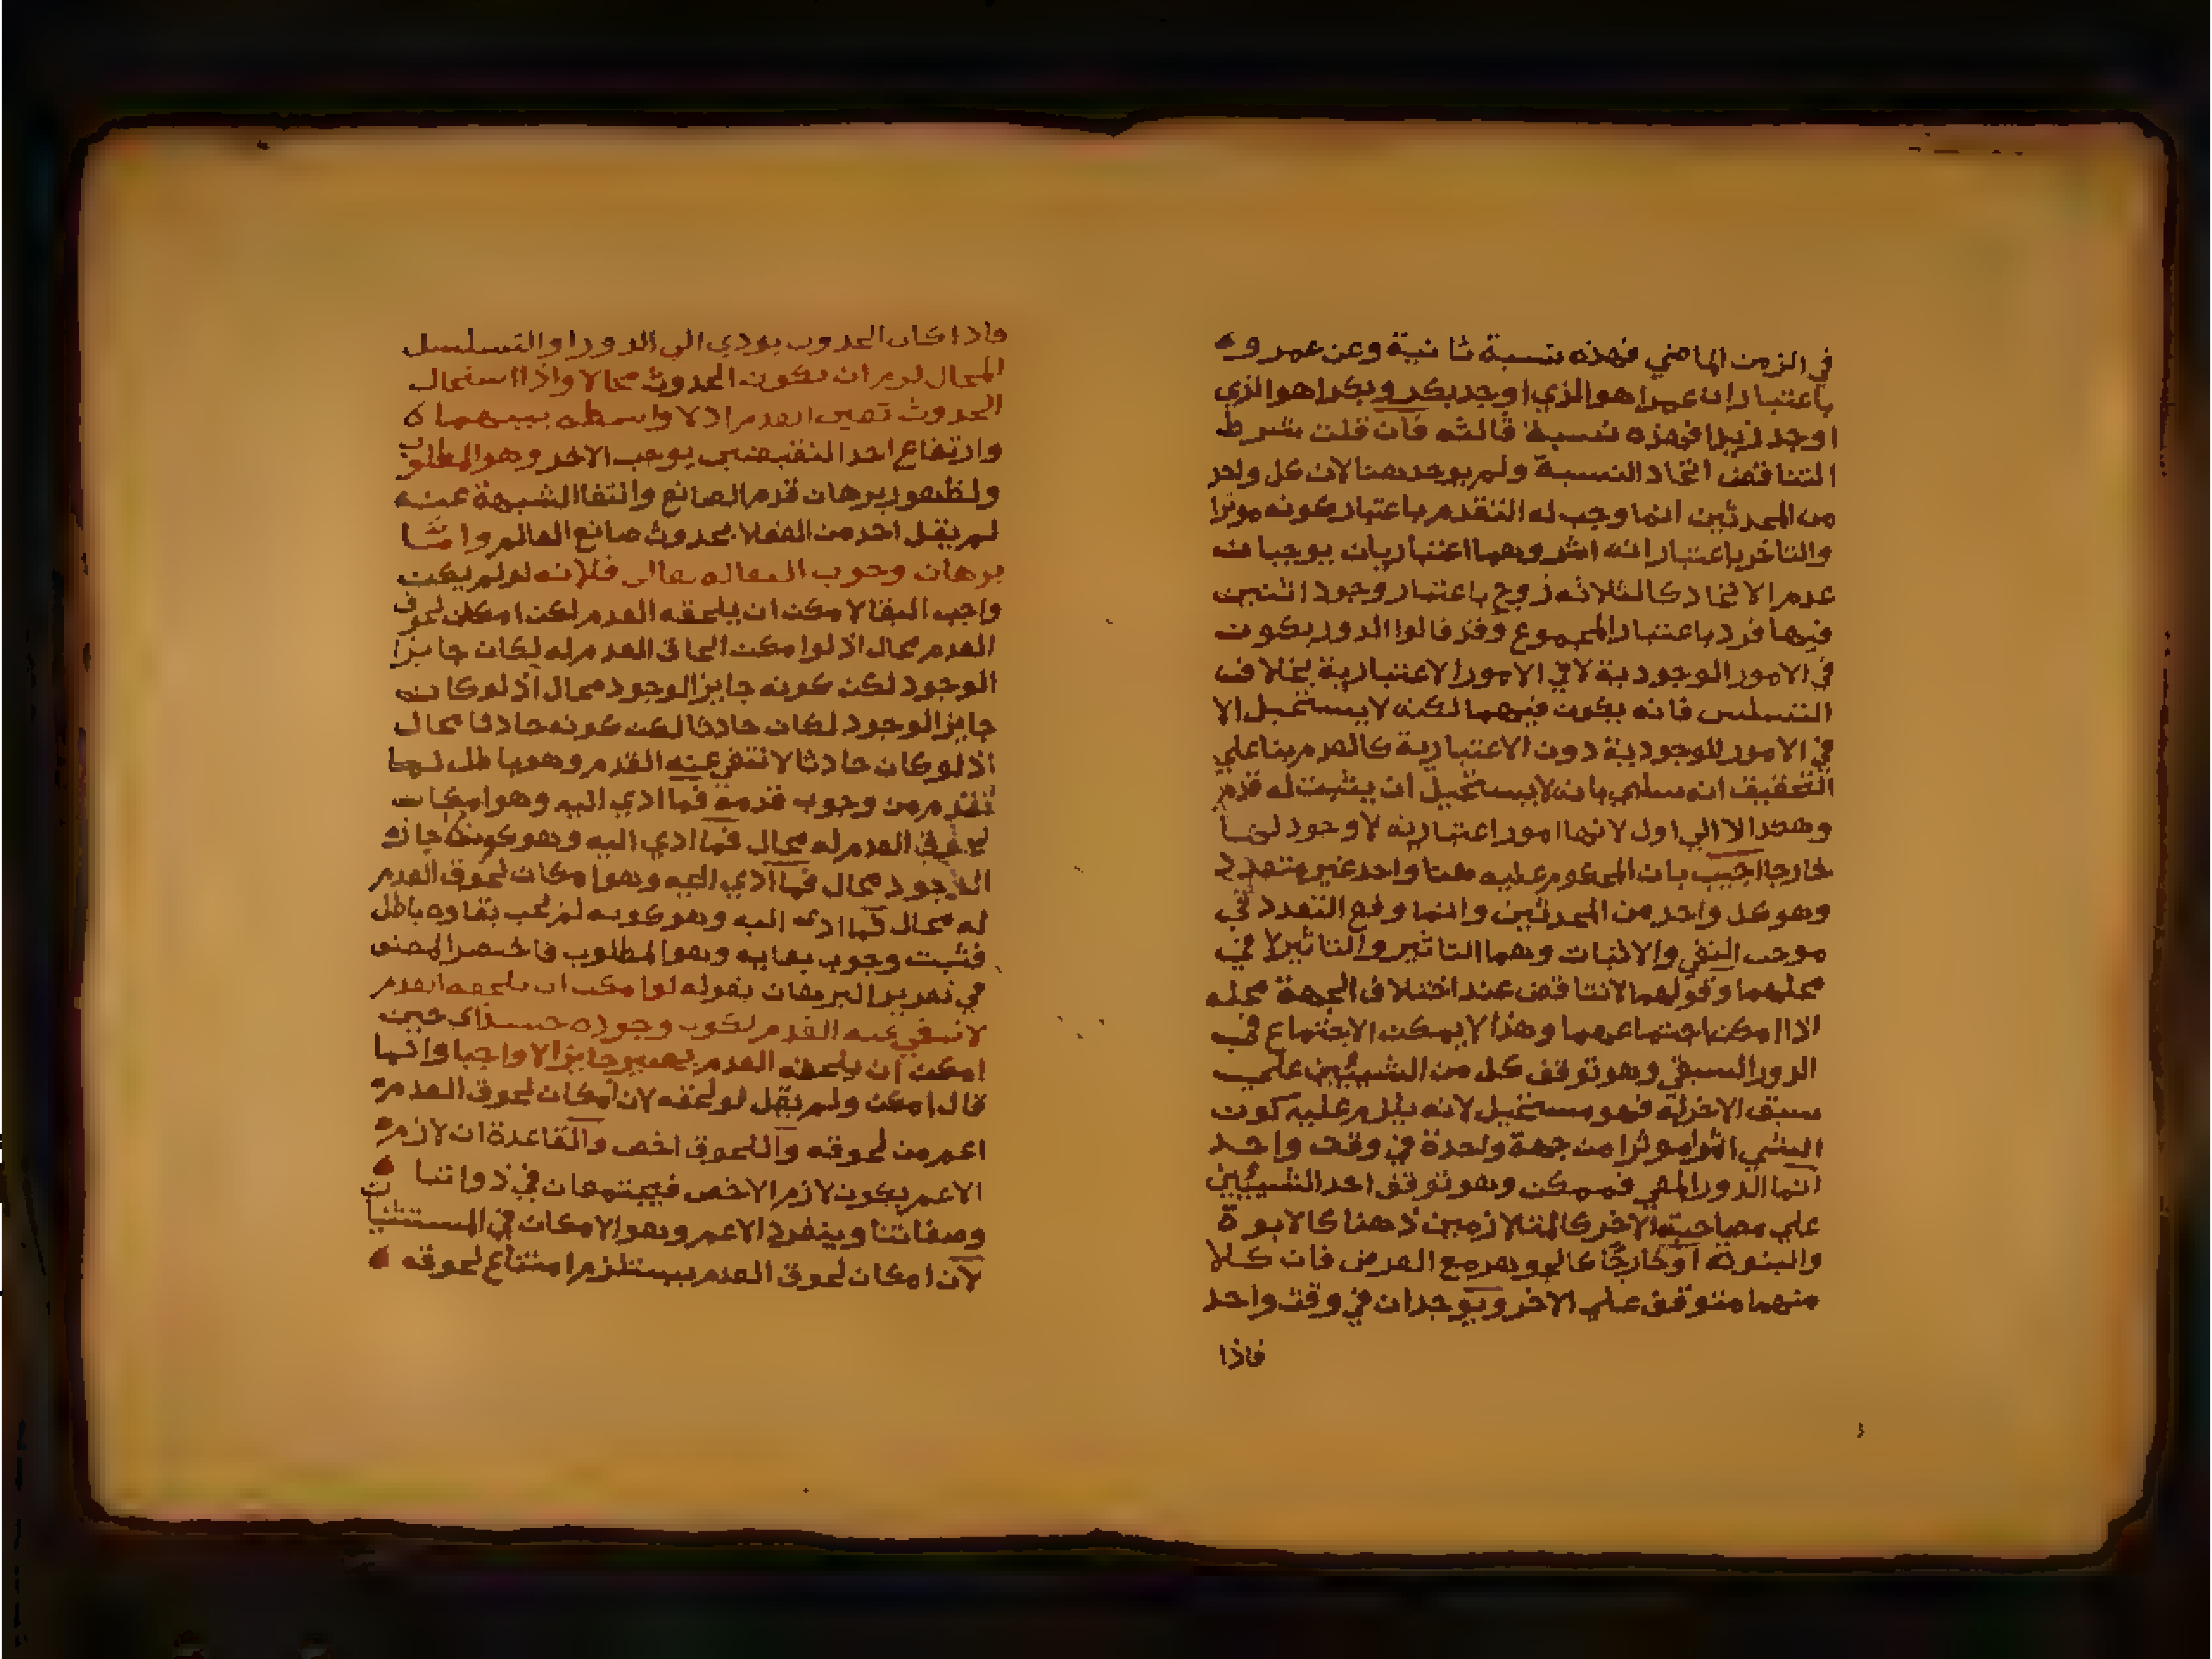 في الزمن الماضي فهذه نسبة ثانية وعن عمرو
باعتبار ان عمرا هو الذي اوجد بكر وبكرا هو الذي
اوجد زيدا فهذه نسبة ثالثه فان قلت شرط
التناقض اتحاد النسبة ولم يوجد هنا لان كل واحد
من المحدثين انما وجب له التقدم باعتبار كونه موثرا
والتاخر باعتبار انه اثر وهما اعتباريان يوجبان
عدم الاتحاد كالثلاثه زوج باعتبار وجود اثنين
فيها فرد باعتبار المجموع وقد قالوا الدور يكون
في الامور الوجودية لا في الامور الاعتبارية بخلاف
التسلسل فانه يكون فيهما لكنه لا يستحيل الا
في الامور الوجودية دون الاعتبارية كالعدم بنا علي
التحقيق انه سلبي بانه لا يستحيل ان يثبت له قدم
وهكذا لا الي اول لانها امور اعتباريه لا وجود لها
خارجا اجيب بان المحكوم عليه هنا واحد غير متعدد
وهو كل واحد من المحدثين وانما وقع التعدد في
موجب النفي والاثبات وهما التاثير والتاثير لا في
محلهما وقولهما لا تناقض عند اختلاف الجهة محله
اذا امكن اجتماعهما وهذا لا يمكن الاجتماع في
الدور السبقي وهو توقف كل من الشيئين علي
سبق الاخر له فهو مستحيل لانه يلزم عليه كون
الشي اثرا موثرا من جهة واحدة في وقت واحد
اما الدور المعي فممكن وهو توقف احد الشيئين
علي مصاحبة الاخر كالمتلازمين ذهنا كالابوة
والبنوة او خارجا كالجوهر مع العرض فان كلا
منهما متوقف علي الاخر ويوجدان في وقت واحد
فاذا
فاذا كان الحدوث يودي الي الدور او التسلسل
المحال لزم ان يكون الحدوث محالا واذا استحال
الحدوث تعين القدم اذ لا واسطه بينهما
وارتفاع احد النقيضين يوجب الاخر وهو المطلوب
ولظهور برهان قدم الصانع وانتفا الشبهة عنه
لم يقل احد من العقلا بحدوث صانع العالم واما
برهان وجوب البقا له تعالي فلانه لو لم يكن
واجب البقا لامكن ان يلحقه العدم لكن امكان لحوق
العدم محال اذ لو امكن الحاق العدم له لكان جايز
الوجود لكن كونه جايز الوجود محال اذ لو كان
جايز الوجود لكان حادثا لكن كونه حادثا محال
اذ لو كان حادثا لانتفي عنه القدم وهو باطل لما
تقدم من وجوب قدمه فما ادي اليه وهو امكان
لحوق العدم له محال فما ادي اليه وهو كونه جايز
الوجود محال فما ادي اليه وهو امكان لحوق العدم
له محال فما ادي اليه وهو كونه لم يجب بقاوه باطل
فثبت وجوب بقايه وهو المطلوب فاختصر المصنف
في تقرير البرهان بقوله لو امكن ان يلحقه العدم
لانتفي عنه القدم لكون وجوده حينئذ اي حين
امكن ان يلحقه العدم يصير جايزا لا واجبا وانما
قال امكن ولم يقل لو لحقه لان امكان لحوق العدم
اعم من لحوقه واللحوق اخص والقاعدة ان لازم
الاعم يكون لازم الاخص فيجتمعان في ذواتنا
وصفاتنا وينفرد الاعم وهو الامكان في المستثنيات
لان امكان لحوق العدم يستلزم امتناع لحوقه